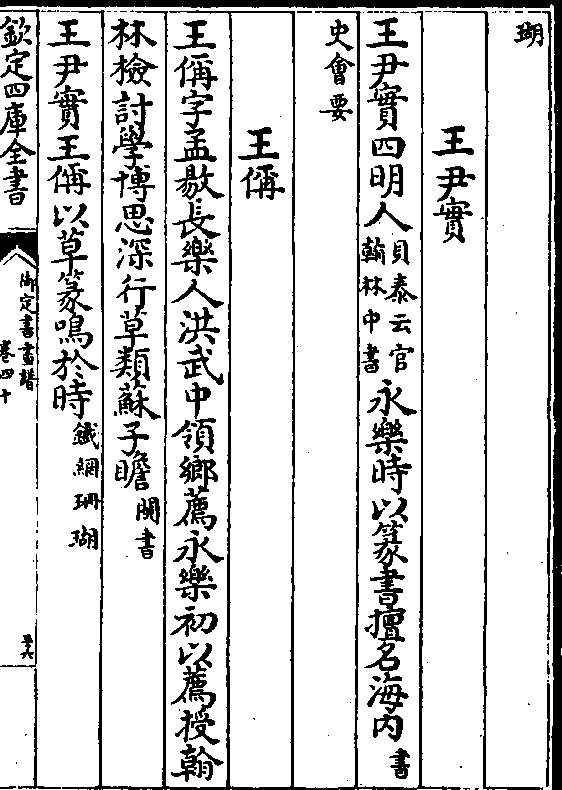 瑚
王尹實
王尹實四明人貝泰云官翰林中書永樂時以篆書擅名海内書
史會要
王偁
王偁字孟敭長樂人洪武中領鄉薦永樂初以薦授翰
林檢討學博思深行草類蘇子瞻閩書
王尹實王偁以草篆鳴於時鐵網珊瑚
欽定四庫全書
御定書畫譜
卷四十